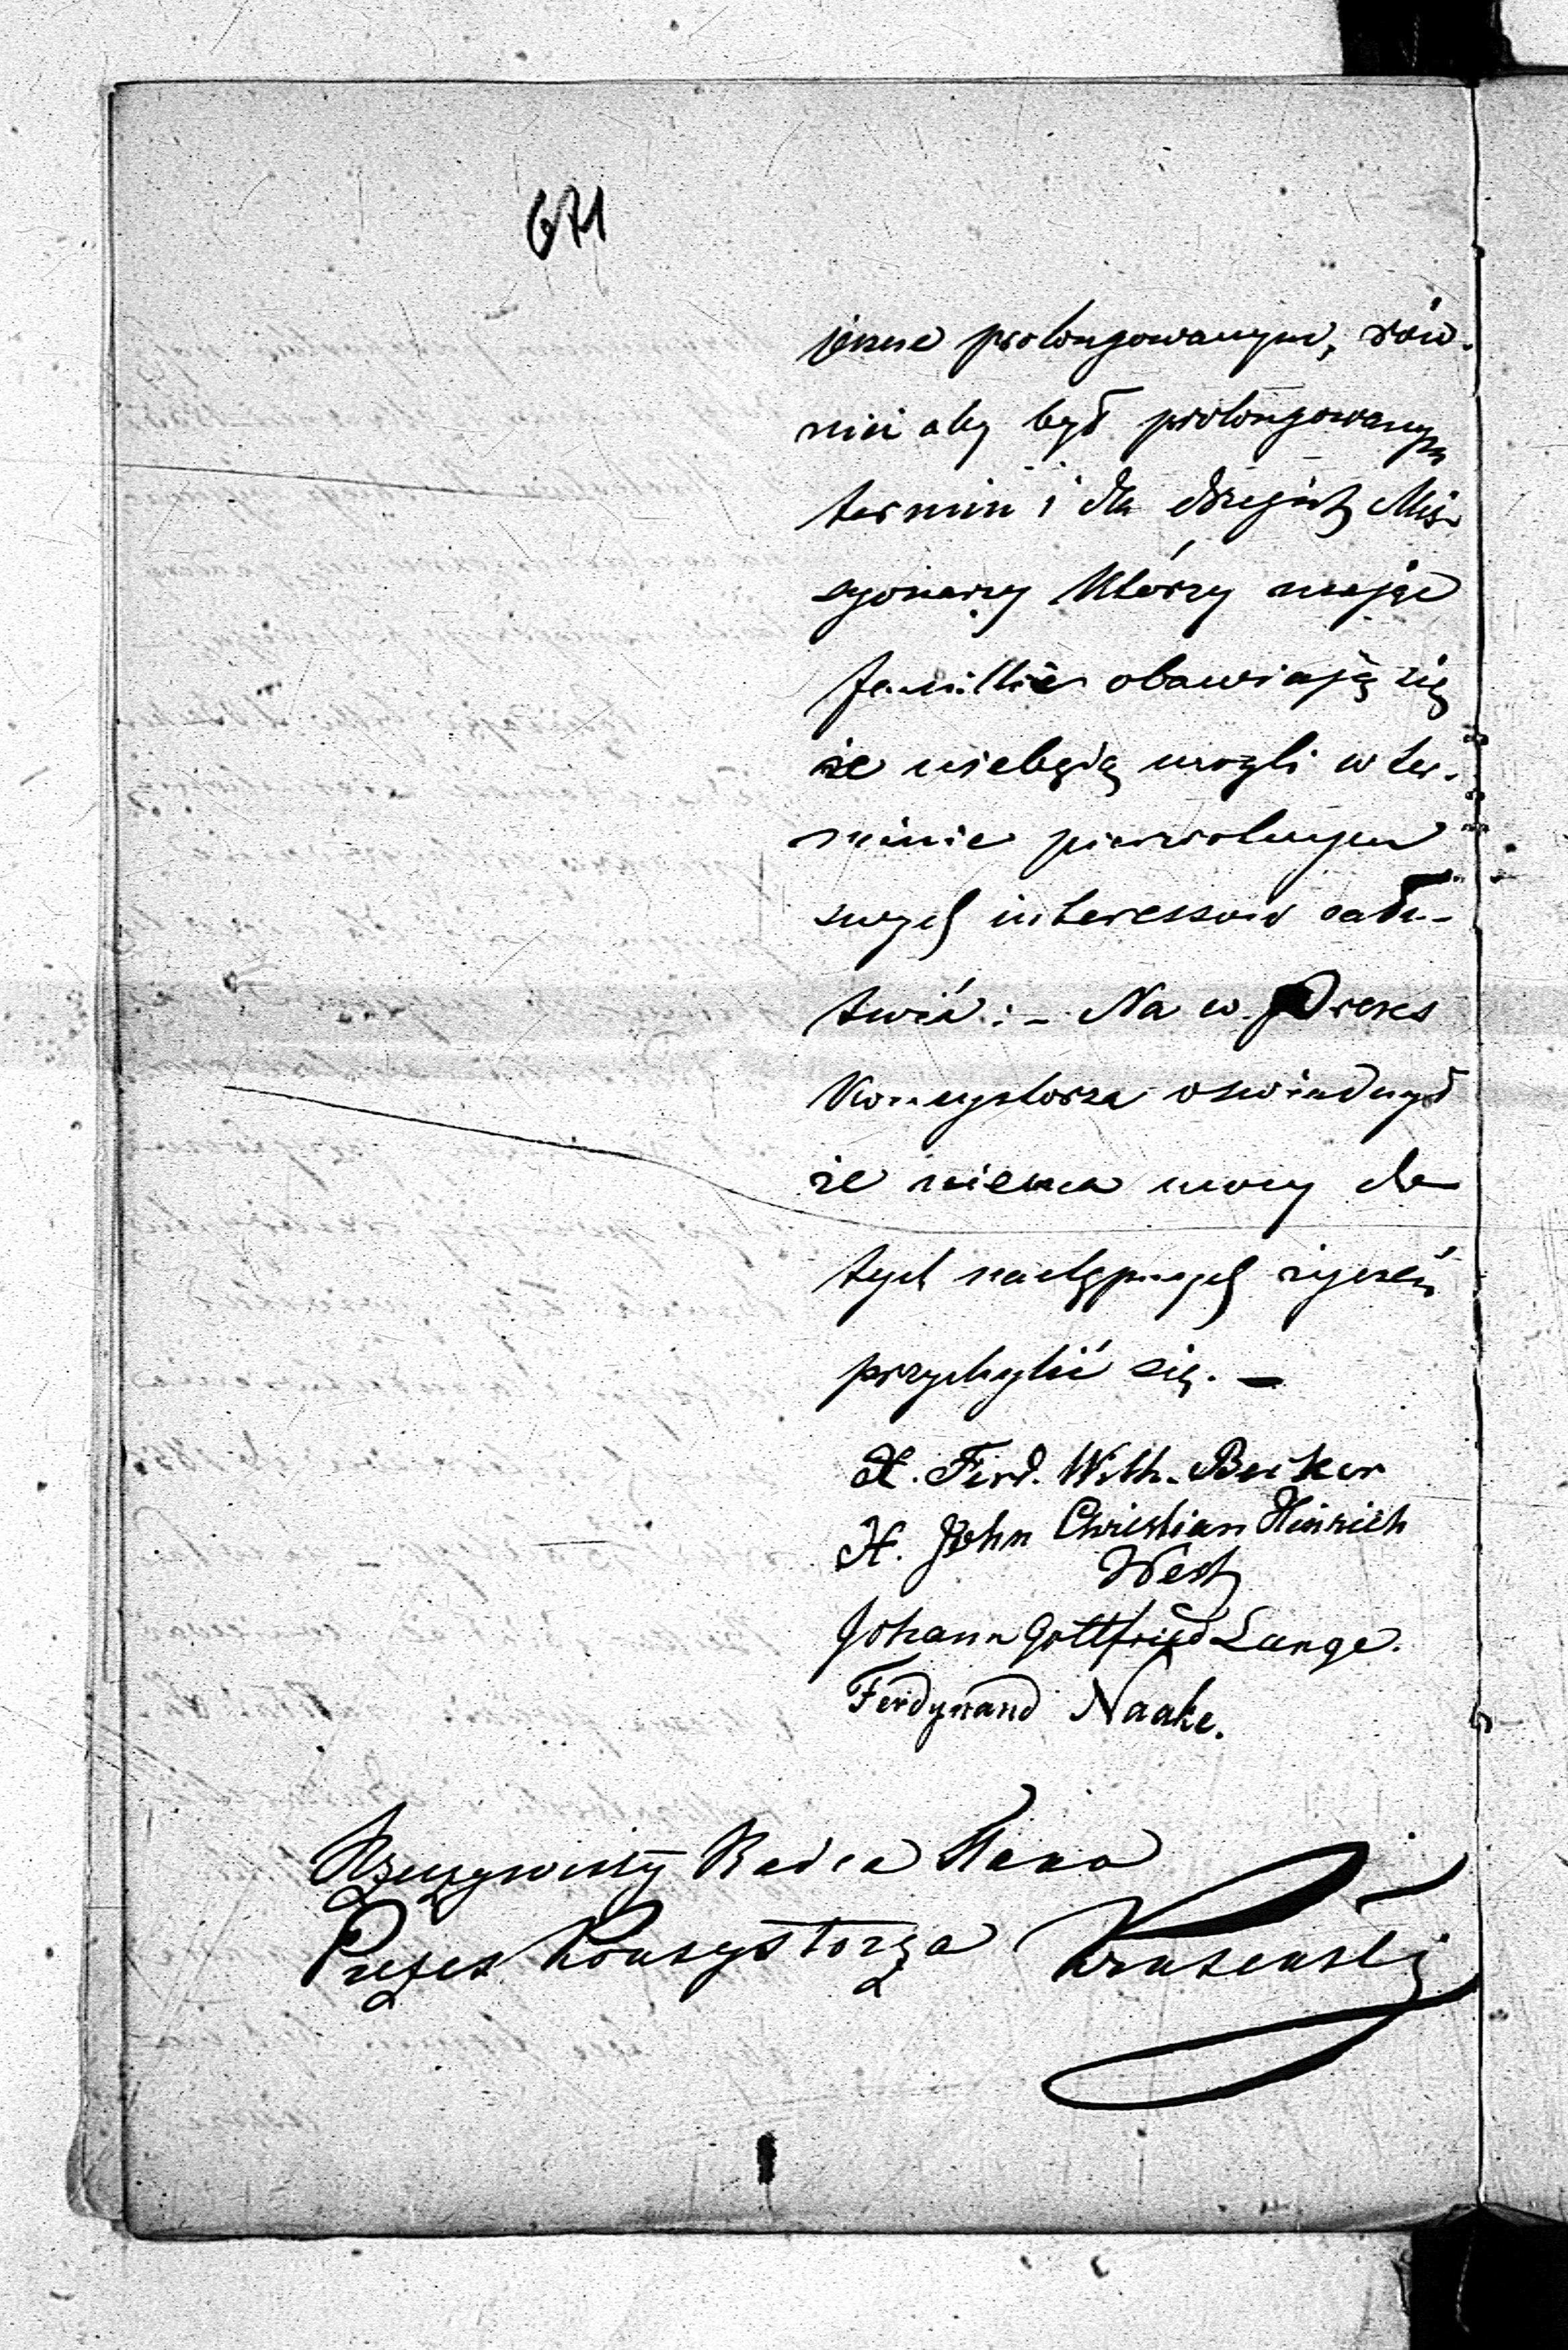 671
jeszcze prolongowanym, rów-
nież aby był prolongowanym
termin i dla drugich Mis-
syonarzy którzy mając
familie obawiają się
że niebędą mogli w ter-
minie pierwotnym
swych interessow załat-
twić: - Na co Prezes
Konsystorza oswiadczył
że niema mocy do
tych następnych życzeń
przychylić się. -
X. Ferd. Wilh. Becker
X. John Christian Heinrich
West
Johann Gottfried Lange.
Ferdynand Naake.
Rzeczywisty Radca Stanu
Prezes Konsystorza Krusenstern